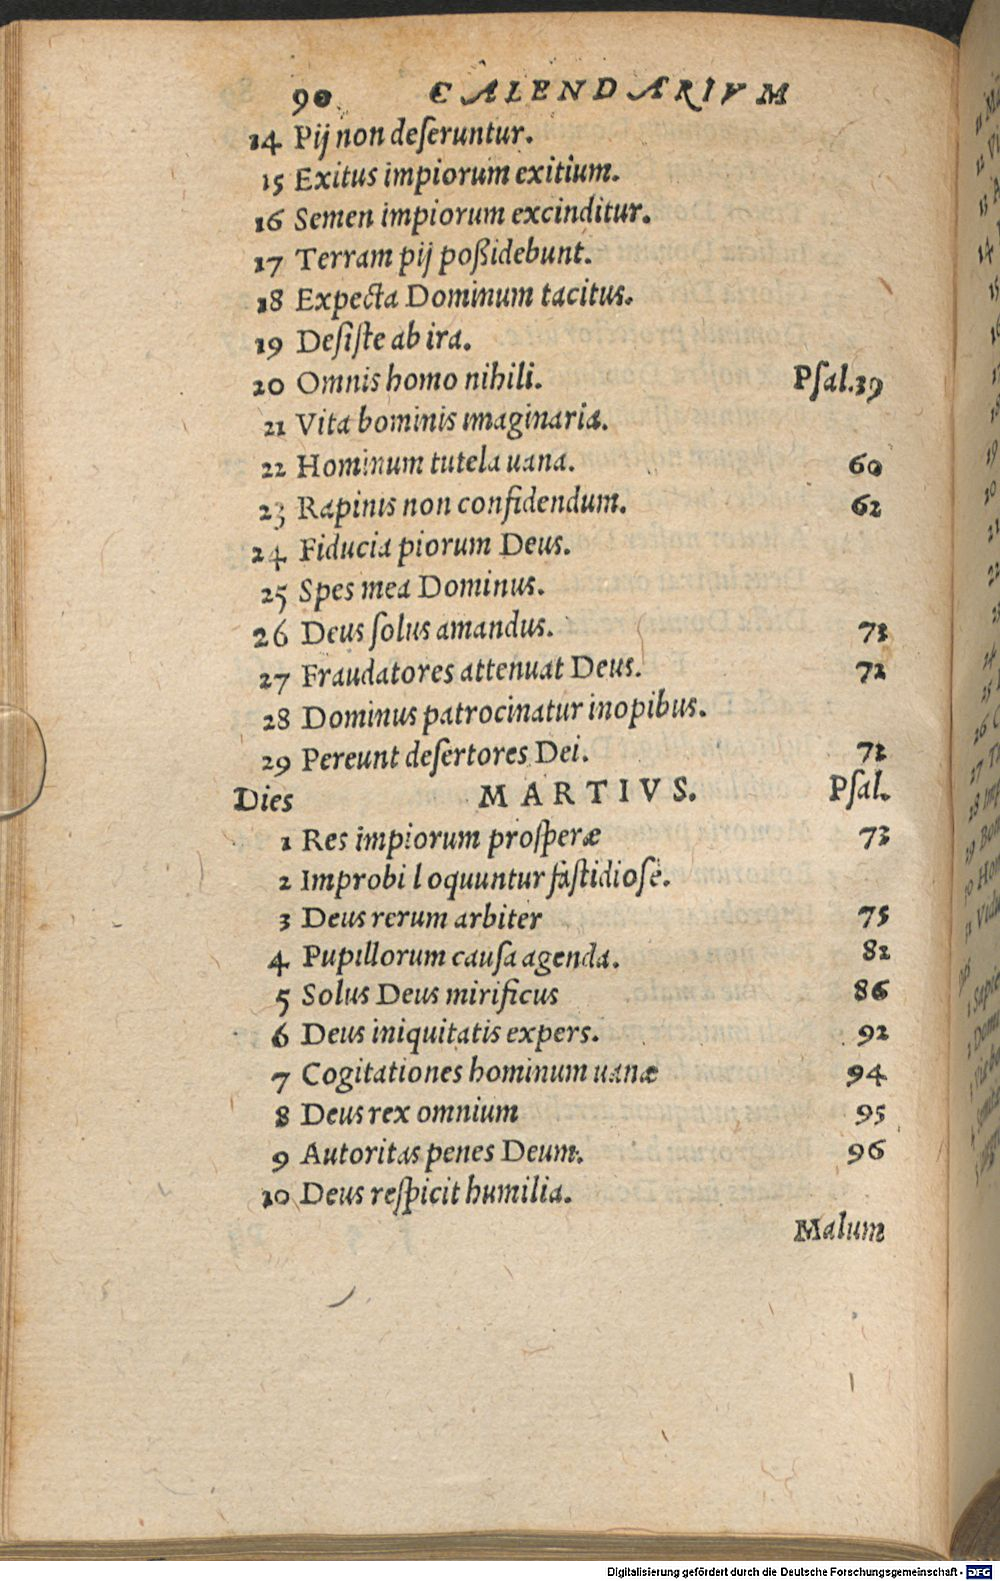 90 CALENDARIVM
14 Pij non deſeruntur.
15 Exitus impiorum exitium.
16 Semen impiorum excinditur.
17 Terram pij poßidebunt.
18 Expecta Dominum tacitus.
19 Deſiſte ab ira.
20 Omnis homo nihili. Pſal.39
21 Vita hominis imaginaria.
22 Hominum tutela uana. 60
23 Rapinis non confidendum. 62
24 Fiducia piorum Deus.
25 Spes mea Dominus.
26 Deus ſolus amandus. 73
27 Fraudatores attenuat Deus. 72
28 Dominus patrocinatur inopibus.
29 Pereunt deſertores Dei. 73
Dies MARTIVS. Pſal.
1 Res impiorum proſperæ 73
2 Improbi loquuntur faſtidioſe.
3 Deus rerum arbiter 75
4 Pupillorum cauſa agenda. 82
5 Solus Deus mirificus 86
6 Deus iniquitatis expers. 92
7 Cogitationes hominum uanæ 94
8 Deus rex omnium 95
9 Autoritas penes Deum. 96
10 Deus reſpicit humilia.
Malum
Digitalisierung gefördert durch die Deutsche Forschungsgemeinschaft - DFG